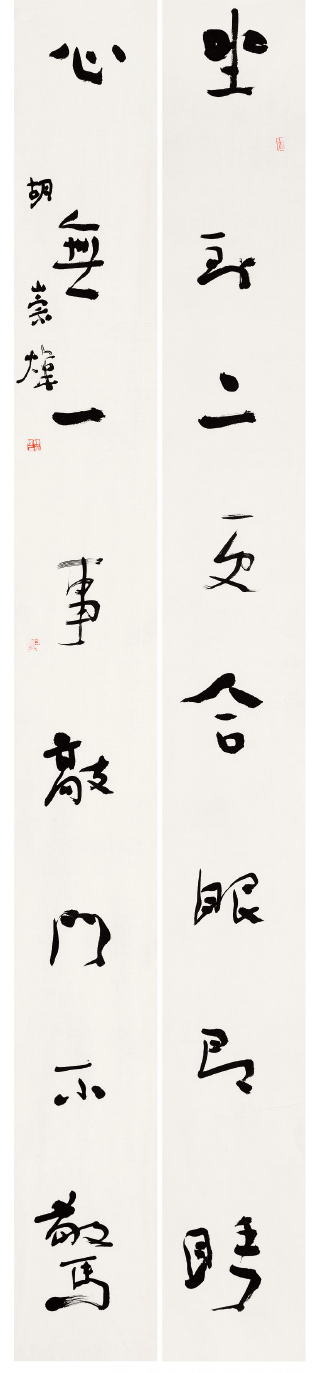 坐到二更合眼即睡
心無一事敲門不驚
胡崇煒